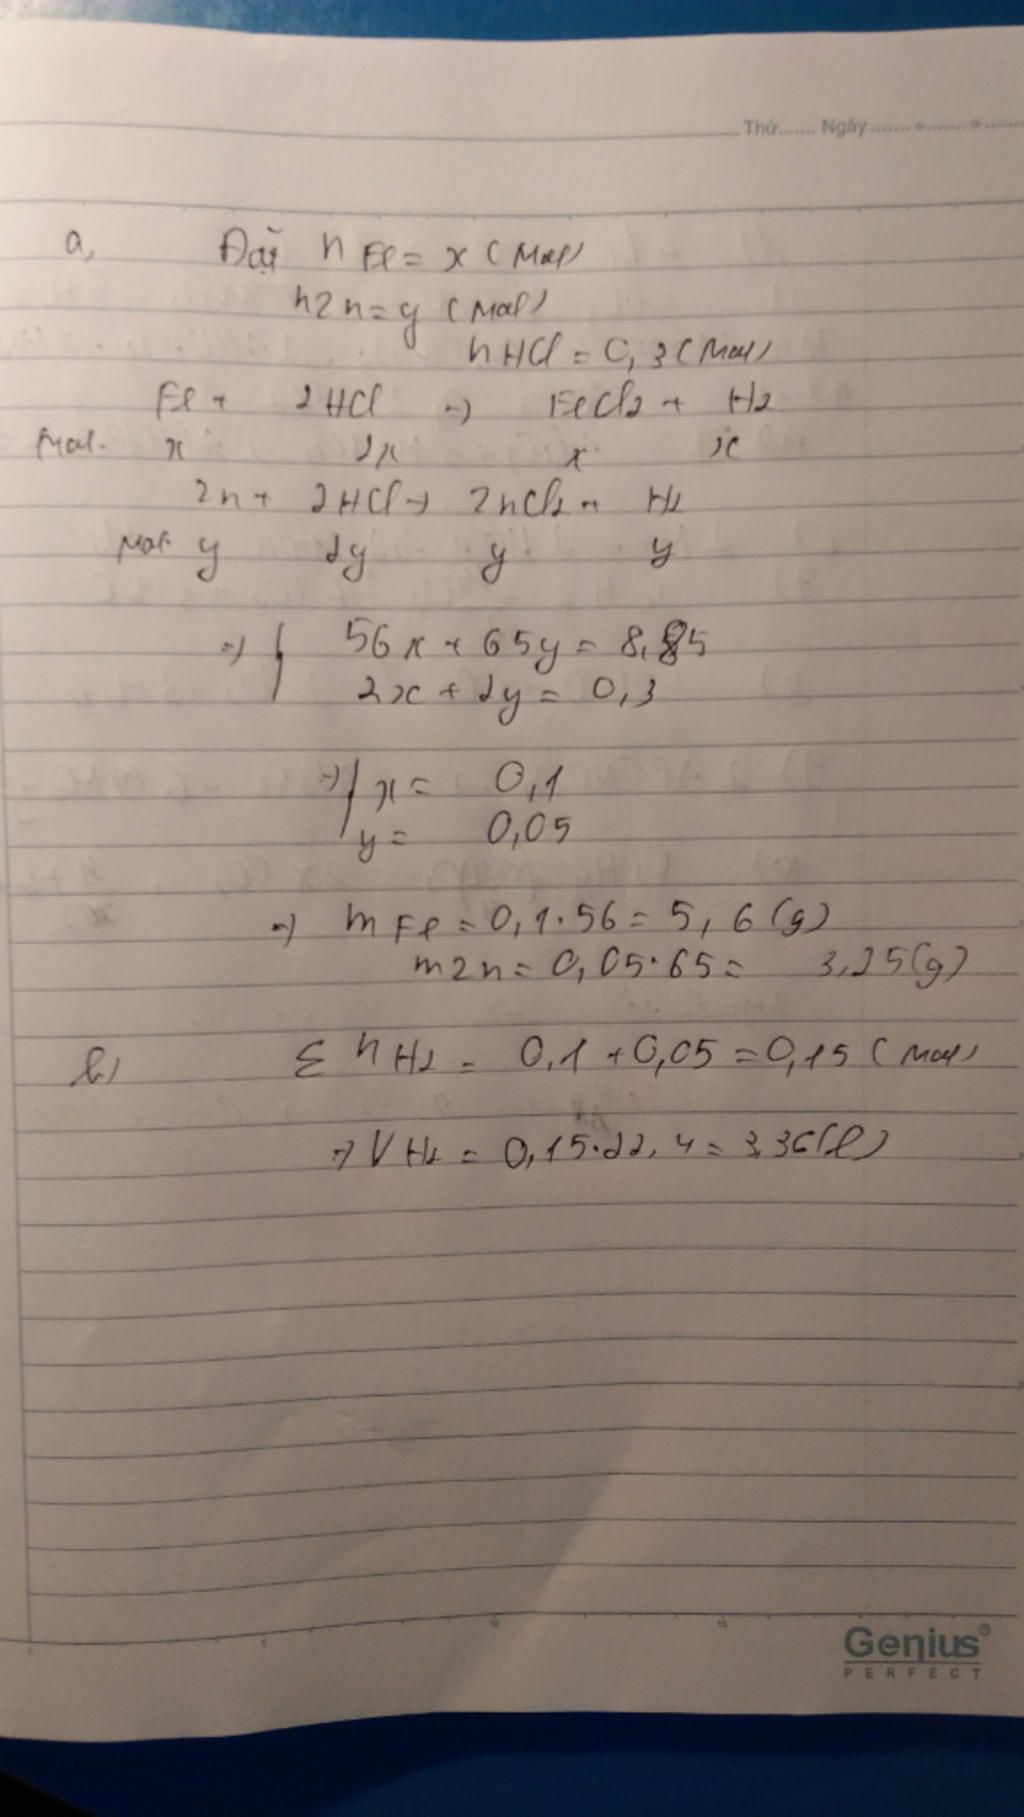 Thứ....... Ngày.......
a, Đặt n Fe = x (mol)
nZn = y (mol)
nHCl = 0,3 (mol)
Fe + 2HCl -> FeCl2 + H2
mol. x 2x x x
Zn + 2HCl -> ZnCl2 + H2
mol. y 2y y y
=> { 56x + 65y = 8,85
2x + 2y = 0,3
=> { x = 0,1
y = 0,05
=> m Fe = 0,1.56 = 5,6 (g)
mZn = 0,05.65 = 3,25 (g)
b, Σ n H2 = 0,1 + 0,05 = 0,15 (mol)
=> V H2 = 0,15.22,4 = 3,36 (l)
Genius®
PERFECT